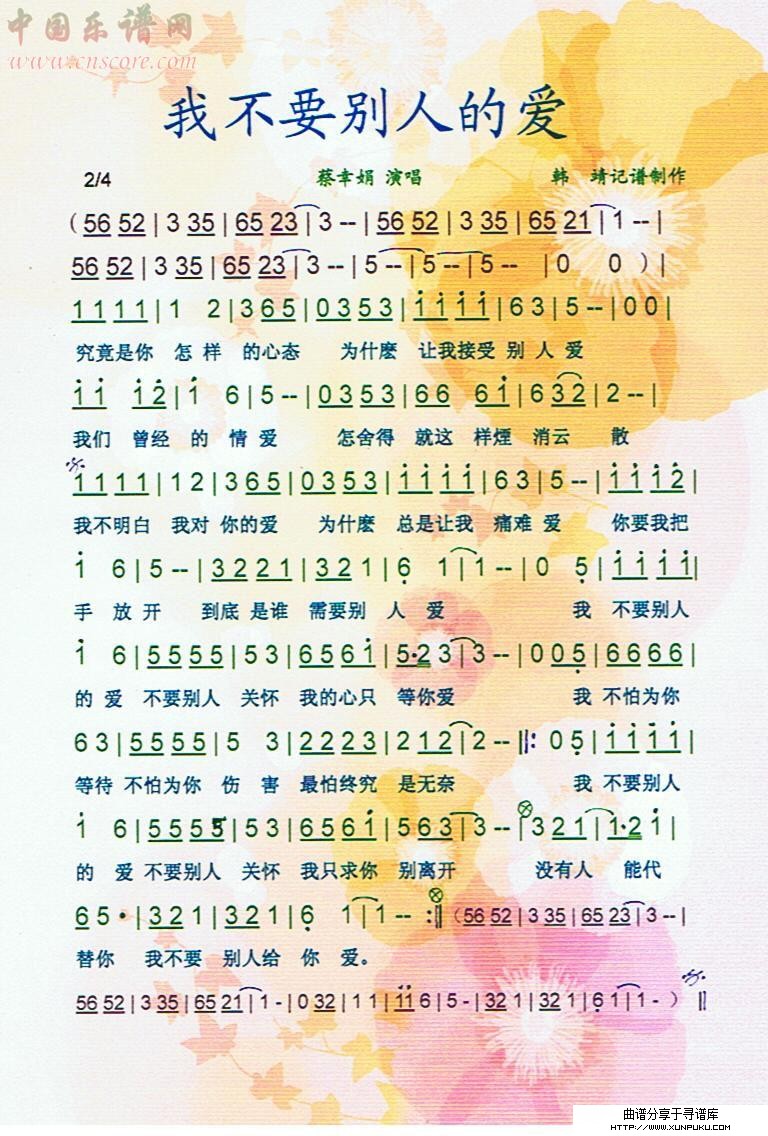 中国乐谱网
www.cnscore.com
我不要别人的爱
2/4 蔡幸娟 演唱 韩 靖记谱制作
（56 52 | 3 35 | 65 23 | 3 -- | 56 52 | 3 35 | 65 21 | 1 -- |
56 52 | 3 35 | 65 23 | 3 -- | 5 -- | 5 -- | 5 -- | 0 0 ）|
1 1 1 1 | 1 2 | 3 6 5 | 0 3 5 3 | i i i i | 6 3 | 5 -- | 0 0 |
究竟是你 怎 样 的心态 为什麽 让我接受 别 人 爱
i i i 2̇ | i 6 | 5 -- | 0 3 5 3 | 6 6 6 i | 6 3 2 | 2 -- |
我们 曾经 的 情 爱 怎舍得 就这 样煙 消云 散
1 1 1 1 | 1 2 | 3 6 5 | 0 3 5 3 | i i i i | 6 3 | 5 -- | i i i 2̇ |
我不明白 我对 你的爱 为什麽 总是让我 痛难 爱 你要我把
i 6 | 5 -- | 3 2 2 1 | 3 2 1 | 6̣ 1 | 1 -- | 0 5̣ | i i i i |
手 放 开 到底 是谁 需要别 人 爱 我 不要别人
i 6 | 5 5 5 5 | 5 3 | 6 5 6 i | 5·2 3 | 3 -- | 0 0 5̣ | 6 6 6 6 |
的 爱 不要别人 关怀 我的心只 等你爱 我 不怕为你
6 3 | 5 5 5 5 | 5 3 | 2 2 2 3 | 2 1 2 | 2 -- ‖: 0 5̣ | i i i i |
等待 不怕为你 伤 害 最怕终究 是无奈 我 不要别人
i 6 | 5 5 5 5 | 5 3 | 6 5 6 i | 5 6 3 | 3 -- | 3 2 1 | 1·2 i |
的 爱 不要别人 关怀 我只求你 别离开 没有人 能代
6 5 · | 3 2 1 | 3 2 1 | 6̣ 1 | 1 -- :‖（56 52 | 3 35 | 65 23 | 3 -- |
替你 我不要 别人给 你 爱。
56 52 | 3 35 | 65 21 | 1 - | 0 32 | 1 1 | i i 6 | 5 - | 32 1 | 32 1 | 6̣ 1 | 1 - ）‖
曲谱分享于寻谱库
HTTP://WWW.XUNPUKU.COM